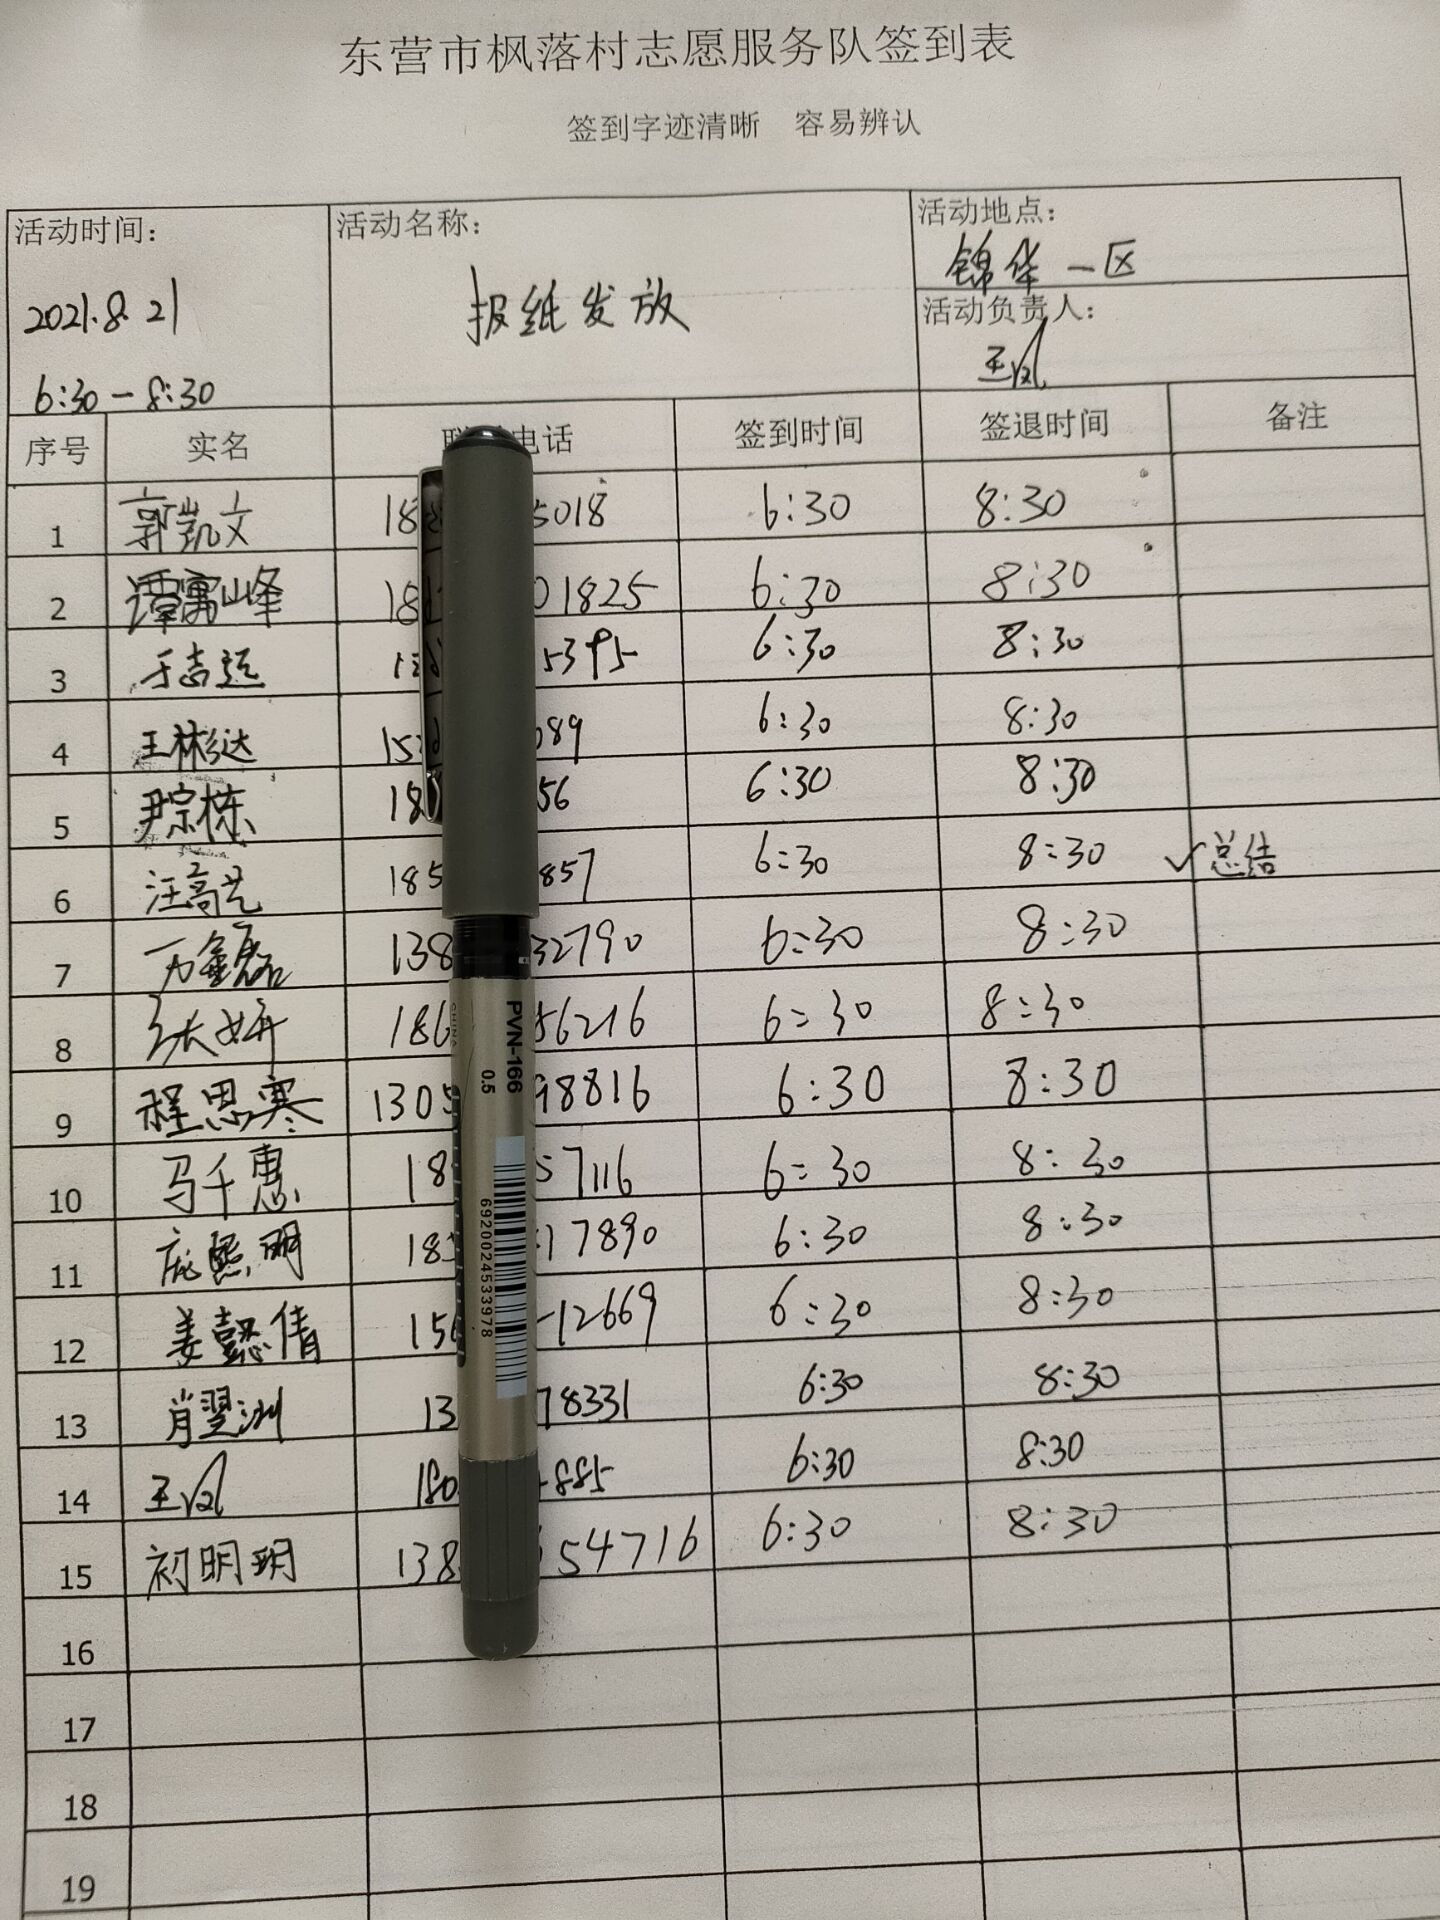 东营市枫落村志愿服务队签到表
签到字迹清晰 容易辨认
活动时间: 活动名称: 活动地点:
锦华一区
2021.8.21 报纸发放
活动负责人:
6:30-8:30
序号 实名 电话 签到时间 签退时间 备注
1 郭凯文 18 5018 6:30 8:30
2 谭富峰 18 01825 6:30 8:30
3 于志远 5395 6:30 8:30
4 王彬达 15 089 6:30 8:30
5 尹宗栋 18 56 6:30 8:30
6 汪高艺 185 857 6:30 8:30 ✓总结
7 万鑫磊 138 32790 6:30 8:30
8 张妍 186 56216 6:30 8:30
9 程思寒 1305 98816 6:30 8:30
10 马千惠 18 57116 6:30 8:30
11 庞熙明 18 17890 6:30 8:30
12 姜懿倩 15 12669 6:30 8:30
13 肖翌洲 13 78331 6:30 8:30
14 180 885 6:30 8:30
15 初明玥 138 54716 6:30 8:30
16
17
18
19
PVN-166
0.5
CHINA
6920024533978